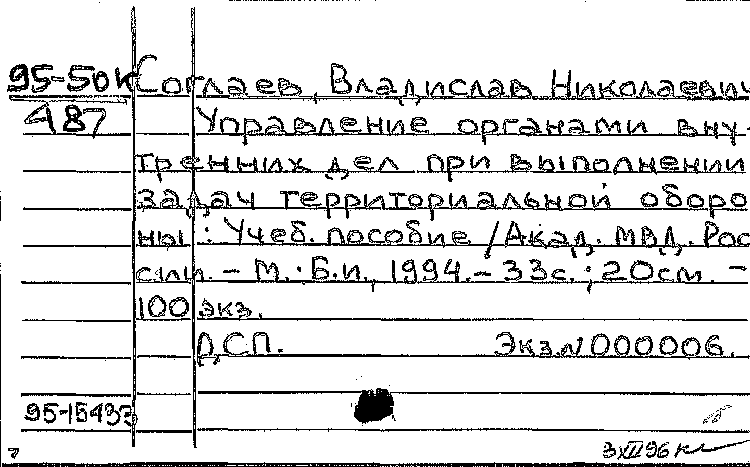 95-50к Соглаев, Владислав Николаевич
487 Управление органами вну-
тренних дел при выполнении
задач территориальной оборо
ны : Учеб. пособие / Акад. МВД. Рос
сии. - М. : Б.и., 1994. - 33с. ; 20см. -
100 экз.
Д.С.П. Экз.N000006.
95-15433
3 XII 96